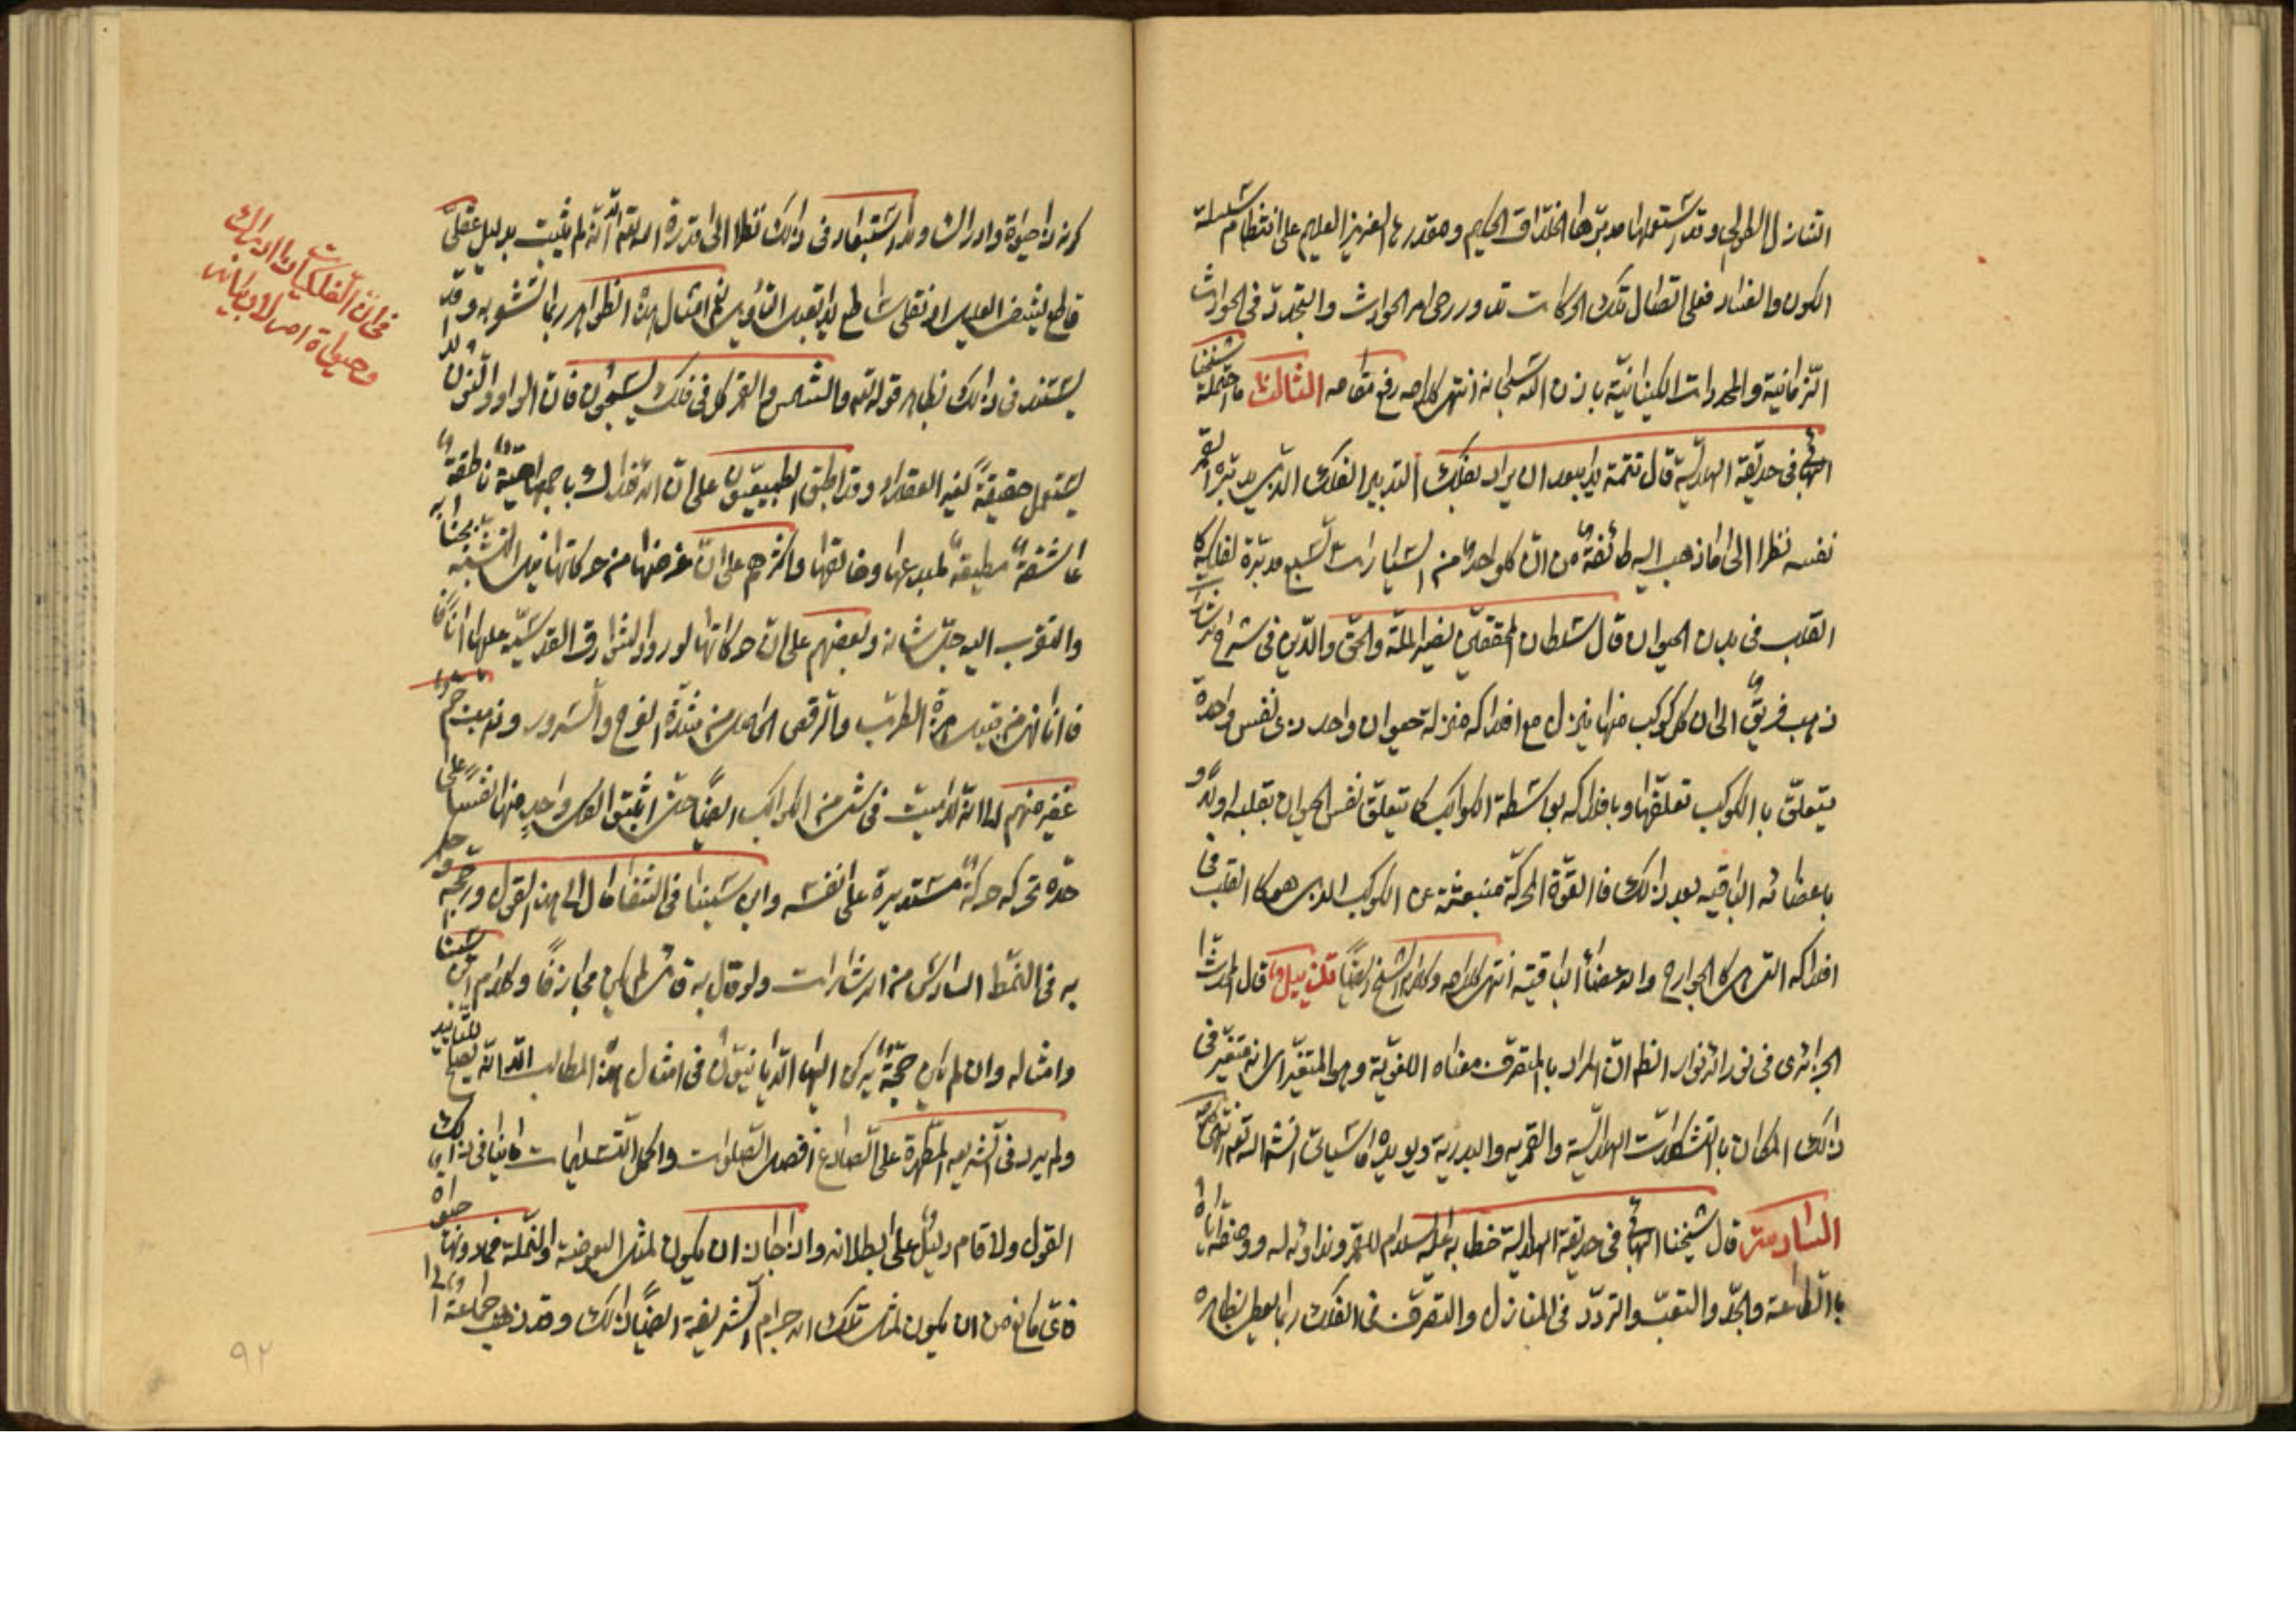 التنازل الطولى وقد استعملها مدبّرها الخلّاق الحكيم ومقدرها العزيز العليم على انتظام سلسلة
الكون والفساد فعلى اتصال تلك الحركات تدور رحى امر الحوادث والتجدّد فى الحوادث
الزمانية والمحدودات الكيانيّة باذن الله سبحانه انتهى كلامه رفع مقامه الثالث ما احتمله شيخنا
البهائى فى حديقة الهلاليّة قال تتمة لا يبعد ان يراد بفلك التدبير الفلك الذى يدبّره القمر
نفسه نظرا الى ما ذهب اليه طائفة من انّ كل واحد من السيارات السبع مدبّرة لفلكه كا
القلب فى بدن الحيوان قال سلطان المحققين نصير الملة والحق والدّين فى شرح الاشارات
ذهب فريق الى ان كل كوكب منها ينزل مع افلاكه منزلة حيوان واحد ذى نفس واحدة
يتعلّق با الكوكب تعلّقها وبافلاكه بواسطة الكواكب كما يتعلق نفس الحيوان بقلبه اولاً و
باعضائه الباقيه بعد ذلك فا القوّة المحركة منبعثة عن الكوكب الذى هو كا القلب فى
افلاكه التى هى كا الجوارح والاعضاء الباقية انتهى كلامه وكلام الشيخ ايضاً تذييل قال المحدث
الجزائرى فى نور الانوار الظ انّ المراد با المتصرف معناه اللغويّة وهو المتغيّر اى انه متغيّر فى
ذلك المكان با التشكلات الهلاليّة والقمريه والبدرية ويويده ما سياتى انشا الله تعم انتهى
السادسة قال شيخنا البهائى فى حديقة الهلالية خطابه عليه السلام للقمر وندائه له ووصفه اياه
با الطاعة والجدّ والتعب والتردّد فى المنازل والتصرف فى الفلك ربما يعطى بظاهره
كونه ذا حيوة وادراك ولا استبعاد فى ذلك نظرا الى قدرة الله تعم الّا انه لم يثبت بدليل عقلىّ
قاطع يشفى العليل او نقلى ساطع لا يقبل التأويل نعم امثال هذه الظواهر ربما تشعر به وقد
يستند فى ذلك بظاهر قوله تعم والشمس والقمر كل فى فلك يسبحون فان الواو والنون لا
يستعمل حقيقةً لغير العقلاء وقد اطبق الطبيعيّون على انّ الافلاك باجمعها حيّة ناطقة
عاشقةٌ مطيعةٌ لمبدعها وخالقها واكثرهم على انّ غرضها من حركاتها نيل التشبّه بجنابه
والتقرب اليه جلّ شانه وبعضهم على انّ حركاتها لورود الشوارق القدسيّة عليها اناً
فاناً فهى من قبيل هزة الطرب والرقص الحاصل من شدّة الفرح والسرور وذهبت جم
غفير منهم الى انّه لا ميت فى شئ من الكواكب ايضاً حتى اثبتوا لكل واحدٍ منها نفساً على
حدّه تحركه حركةً مستديرة على نفسه وابن سينا فى الشفا مال الى هذا القول ورجحه وحكم
به فى النمط السادس من الاشارات ولو قال به قائل لم يكن مجازفاً وكلام ابن سينا
وامثاله وان لم يكن حجّة يركن اليها الدّيانيّون فى امثال هذه المطالب الّا انّه يصلح للتاييد
ولم يرد فى الشريعه المطهّرة على الصادع بها افضل الصلوات واكمل التسليمات ما ينافى ذلك
القول ولا قام دليل على ابطلانه واذا جاز ان يكون لمثل البعوضة والنملة فما دونها حيوة
فاىّ مانع من ان يكون لمثل تلك الاجرام الشريفة ايضاً ذلك وقد ذهب جماعة ا
فى انّ الفلكيات الادراك
وحياة ام لا وبيانه
٩٢